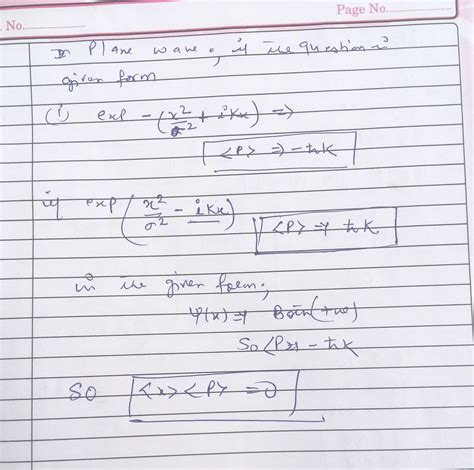 No.
Page No.
In Plane wave, if the question is
given form
(i) exp - (x²/σ² + iKx) ⇒
<P> ⇒ - ħK
if exp (x²/σ² - iKx) <P> ⇒ ħK
in the given form,
ψ(x) ⇒ Both (+ve)
So <P> - ħK
SO <x> <P> = 0